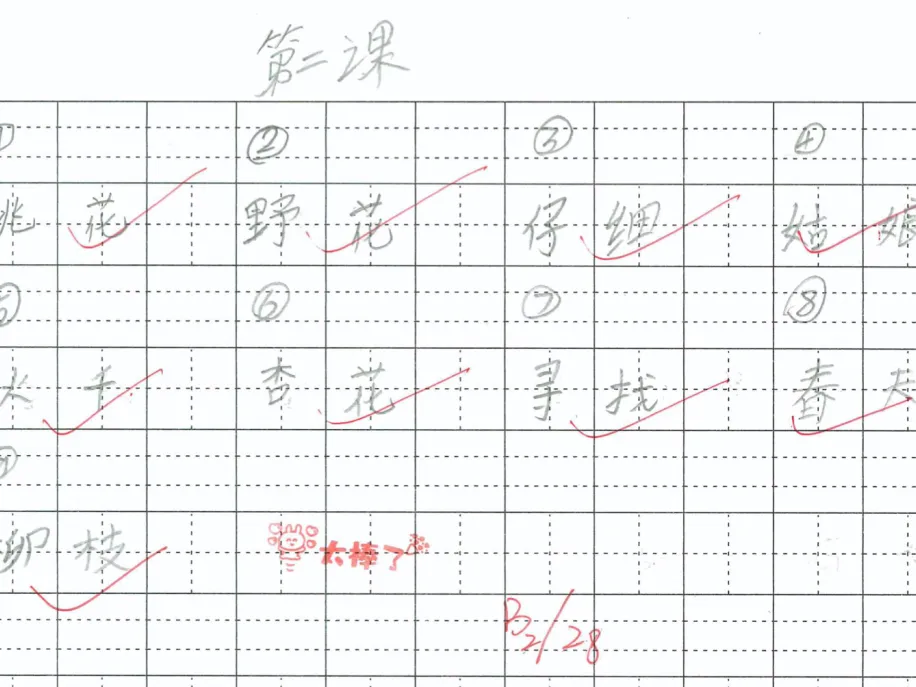 第二课
① ② ③ ④
桃花 野花 仔细 姑娘
⑤ ⑥ ⑦ ⑧
秋千 杏花 寻找 春天
⑨
柳枝 太棒了
B 2/28